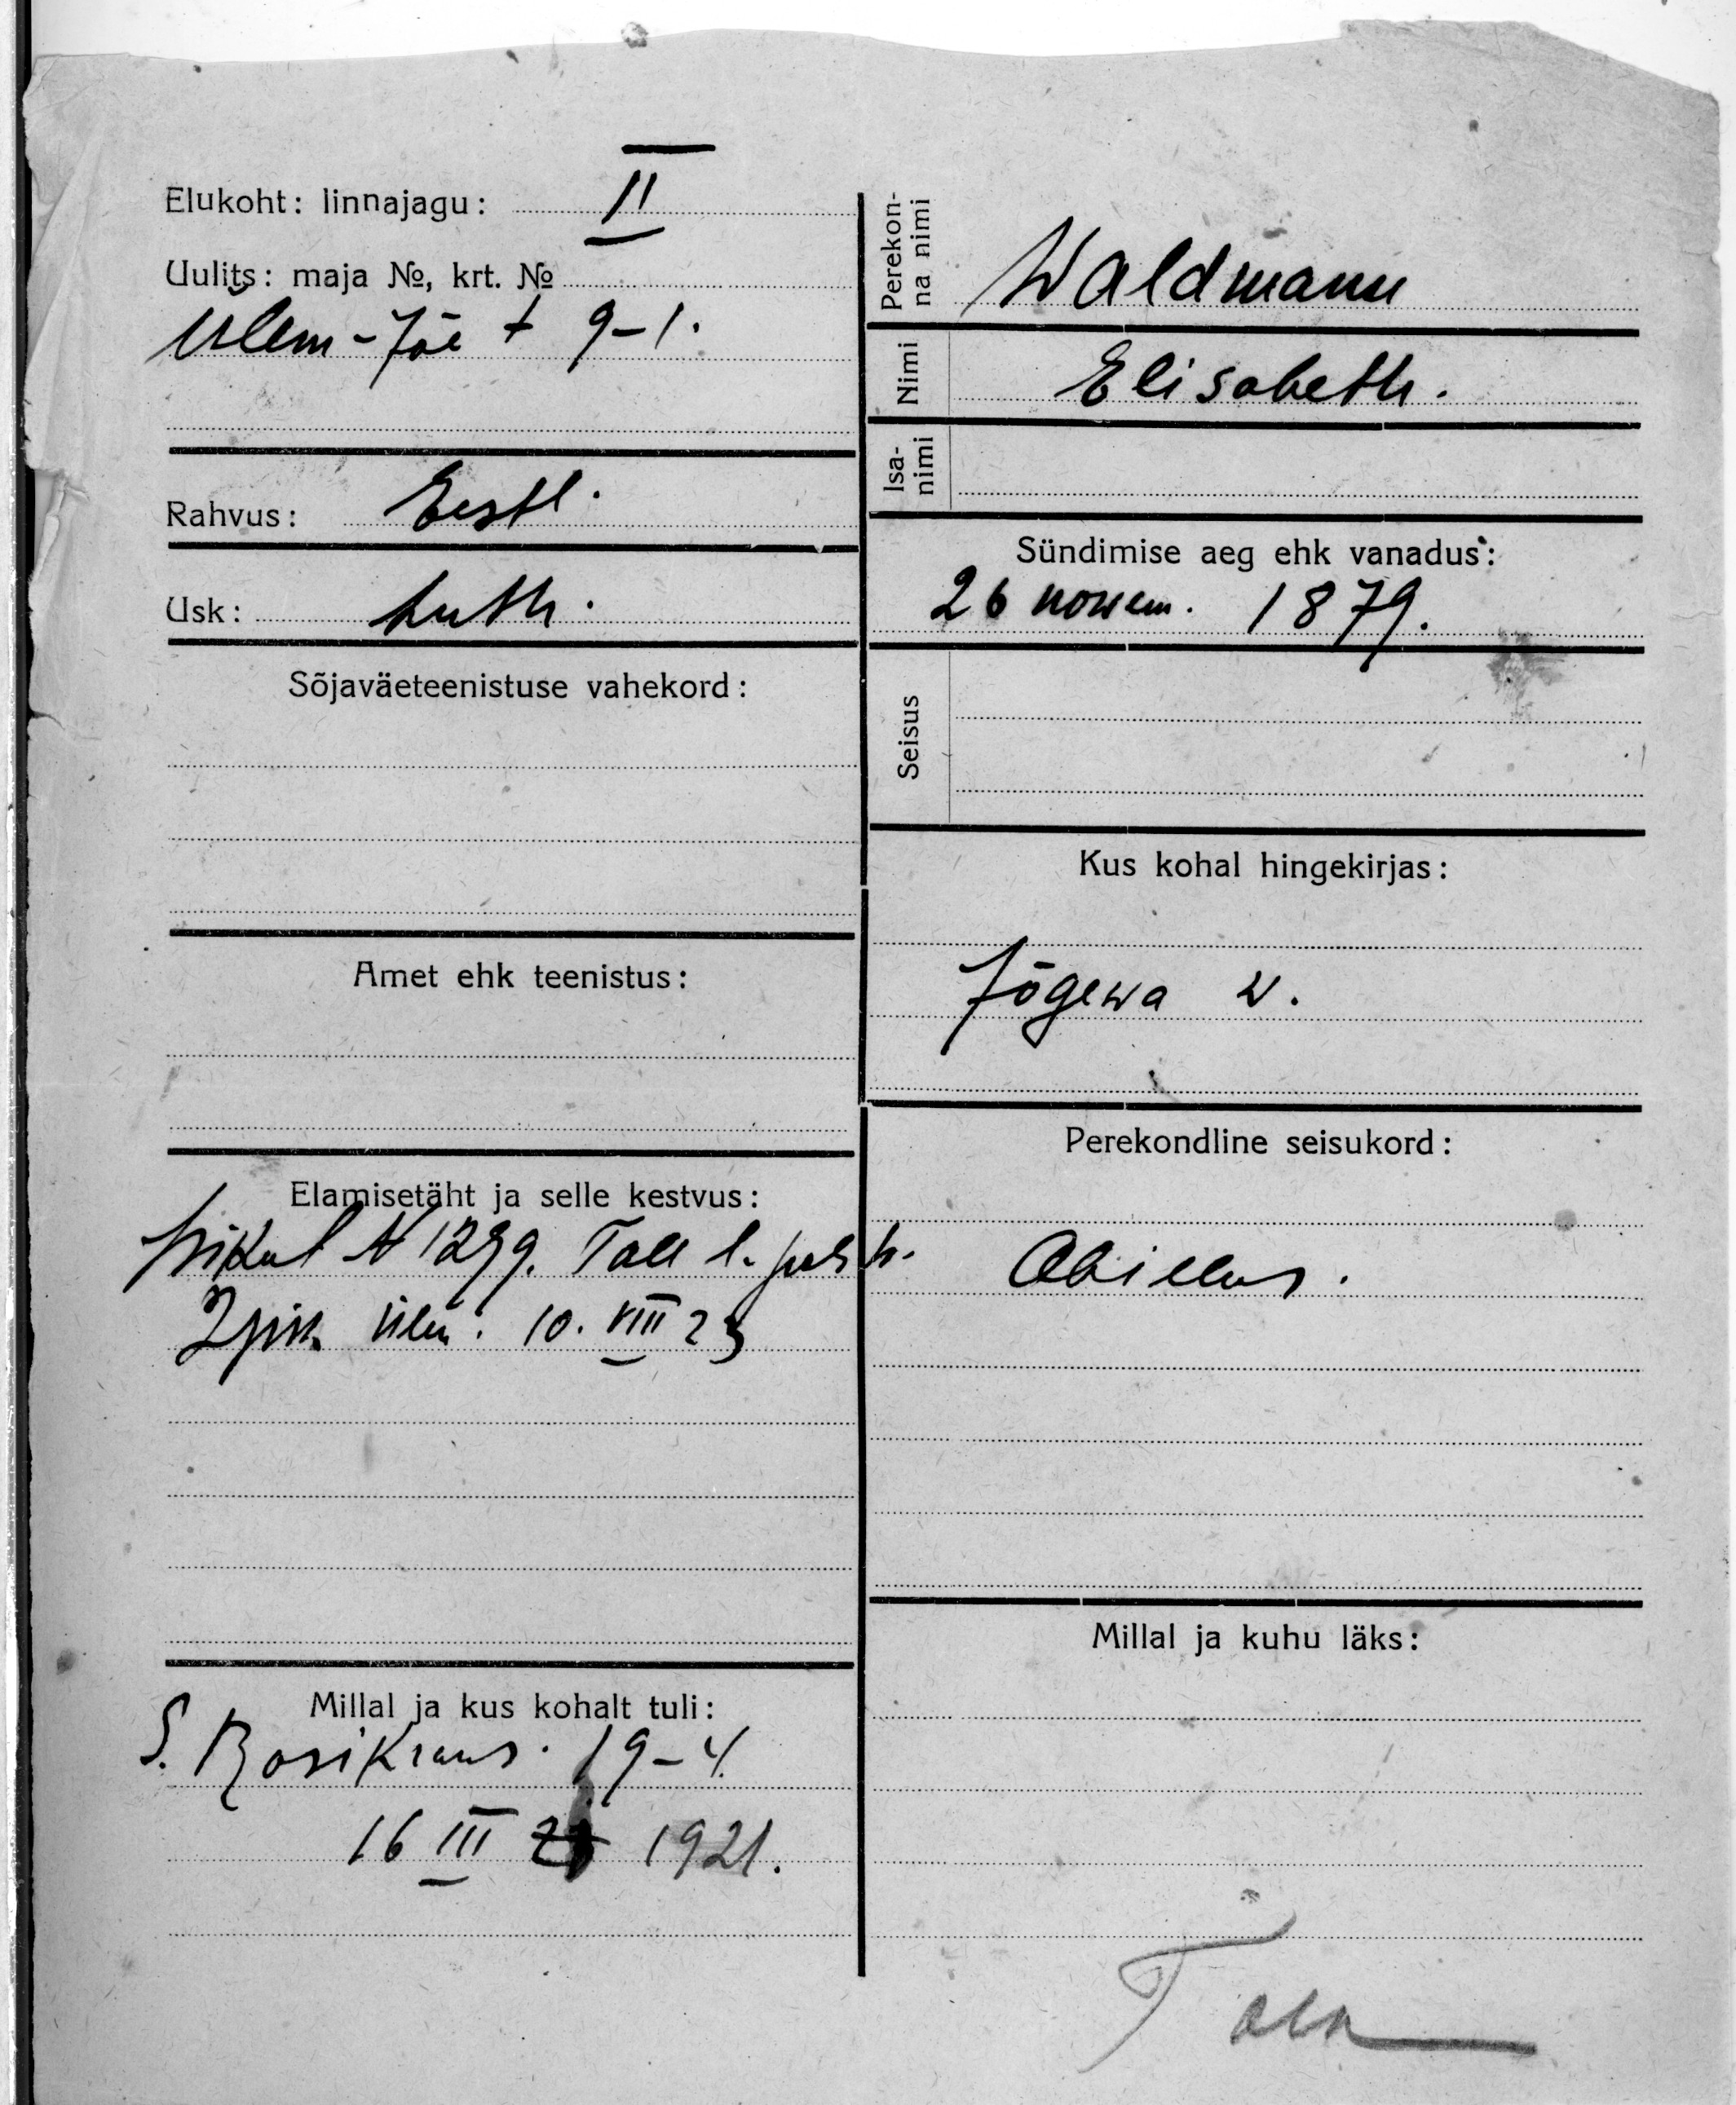 Elukoht: linnajagu: II
Uulits: maja №, krt. №
Ülem-Jõe t 9–1.
Rahvus: Eestl.
Usk: Luth.
Sõjaväeteenistuse vahekord:
Amet ehk teenistus:
Elamisetäht ja selle kestvus:
Isikut N 1299. Tall l. pol.
2 jsk. ülem. 10. VIII 23
Millal ja kus kohalt tuli:
S. Rosikrans. 19–4.
16 III 1921.
Perekonna nimi Waldmann
Nimi Elisabeth.
Isanimi
Sündimise aeg ehk vanadus:
26 nowem. 1879.
Seisus
Kus kohal hingekirjas:
Jõgewa w.
Perekondline seisukord:
Abielus.
Millal ja kuhu läks: